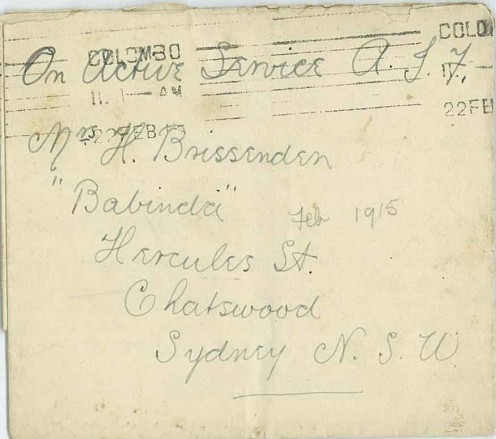 COLOMBO COLO
On Active Service A. I. F.
11. AM 11.
22 FEB 22 FE
Mrs H. Brissenden
"Babinda" Feb 1915
Hercules St.
Chatswood
Sydney N. S. W.